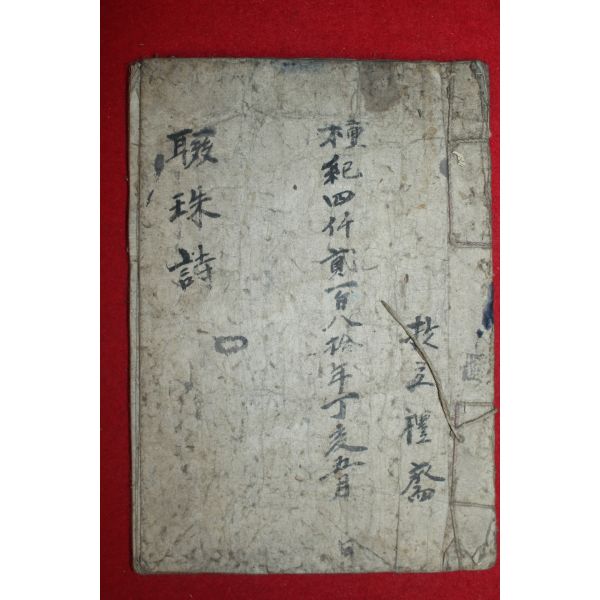 於立禮齋
檀紀四仟貳百八拾年丁亥五月
聯珠詩